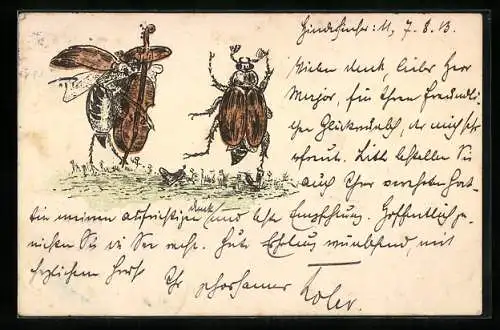 11, 7. 8. 13.
Vielen Dank, lieber Herr
Major, für Ihren freundli-
chen Glückwunsch, der mich sehr
erfreut. Bitte bestellen Sie
auch Ihrer verehrten Gat-
tin meinen aufrichtigen Dank und beste Empfehlung. Hoffentlich ge-
nießen Sie die See recht. Gute Erholung wünschend, mit
herzlichem Gruß
Ihr gehorsamer